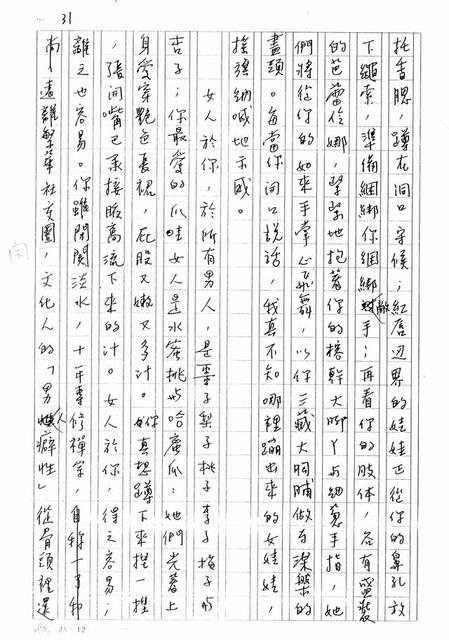 31
托香腮，蹲在洞口守候；紅唇边界的娃娃正從你的鼻孔放
下繩索，準備綑綁你綑綁敵手；再看你的肢體，各有盛裝
的芭蕾伶娜，緊緊地抱著你的樹幹大腳丫与細蔥手指，她
們將從你的如來手掌心飛舞，以你三藏大胸脯做為深樂的
畫頭。每當你開口說話，我真不知哪裡蹦出來的女娃娃，
搖旗納喊地示威。
女人於你，於所有男人，是棗子梨子桃子李子梅子与
杏子；你最愛的爪哇女人是水蜜桃与哈蜜瓜：她們光著上
身愛穿艷色長裙，屁股又嫩又多汁。你真想蹲下來捏一捏
，張開嘴巴承接瞭高流下來的汁。女人於你，得之容易；
離之也容易。你雖閉關淡水，十年專修禪学，自称一了和
尚，遠離繁華社交圈，文化人的「男人癖性」從骨頭裡還